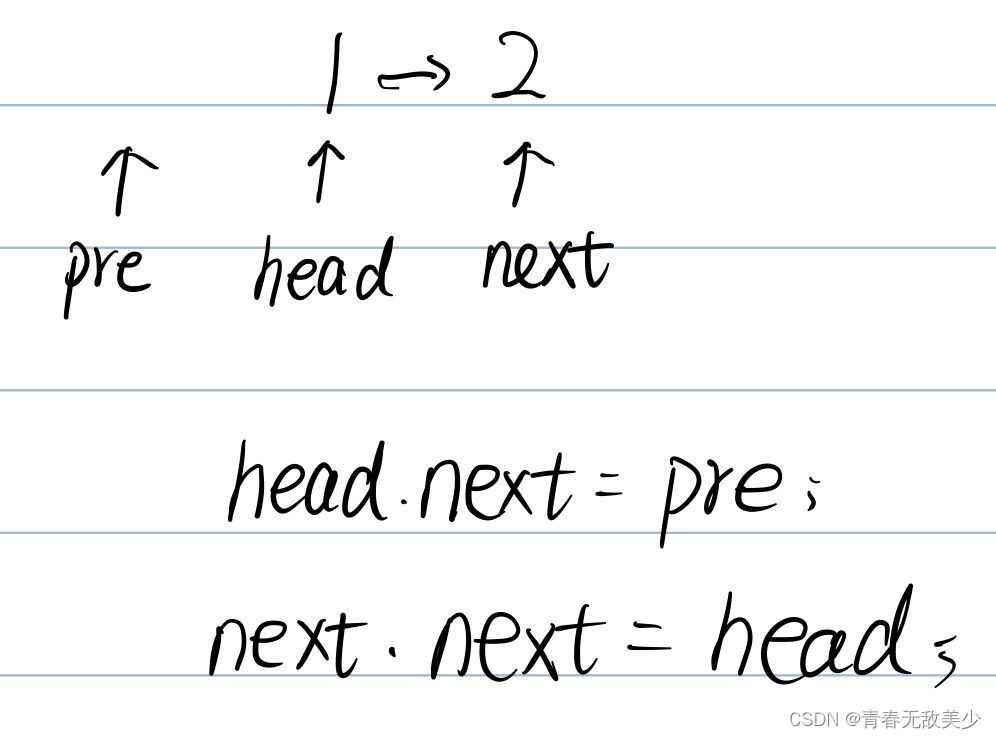 1 → 2
↑ ↑ ↑
pre head next
head.next = pre;
next.next = head;
CSDN @青春无敌美少